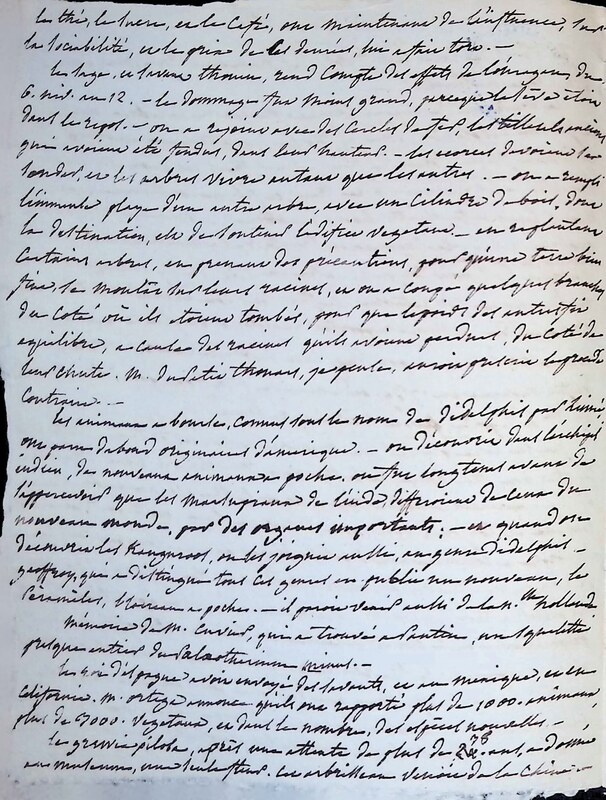 le thé, le sucre, et le Café, ont maintenant de l'influence, sur
la sociabilité, et le prix de ces denrées, lui a fait tort. —
Le sage, et savant thouin, rend Compte des effets de l'ouragan, du
6. niv. an 12. — le dommage fut moins grand, parceque la sève étoit
dans le repos. — on a rejoint avec des Cercles de fer, les tilleuls anciens
qui avoient été fendus, dans leur hauteur. — les ecorces devoient se
souder, et les arbres vivre autant que les autres. — on a rempli
l'immense playe d'un autre arbre, avec un Cilindre de bois, dont
la destination, est de soutenir l'edifice vegetant. — en replantant
Certains arbres, en prenant des précautions, pour qu'une terre bien
fine, se moulât sur leurs racines, et on a coupé quelques branches
du Coté où ils etoient tombés, pour que le poids des autres fit
equilibre, a cause des racines qu'ils avoient perdues, du Coté de
leur chute. M. du petit thouars, je pense, auroit prescrit le procédé
Contraire. —
les animaux a bourse, connus sous le nom de Didelphis par Linné,
ont paru d'abord originaires d'amerique. — on découvrit dans l'archipel
indien, de nouveaux animaux a poche. on fut longtems avant de
s'appercevoir que les marsupiaux de l'inde, differoient de ceux du
nouveau monde, par des organes importants; — et quand on
découvrit les Kanguroos, on les joignit aussi, au genre Didelphis —
geoffroy, qui a distingué tous ces genres en publie un nouveau, le
Péramèles, blaireau a poche. — il paroit venir aussi de la n.lle hollande
Mémoire de M. Cuvier, qui a trouvé a Pantin, un squelette
presque entier du Palaeotherium minus. —
les roi d'espagne avoit envoyé des savants, et au mexique, et en
Californie. M. ortega annonce qu'ils ont rapporté plus de 1000. animaux
plus de 4000. vegetaux, et dans le nombre, des espèces nouvelles —
le grewia pilosa, après une attente de plus de 28. ans, a donné
au museum, une seule fleur. cet arbrisseau venoit de la Chine —